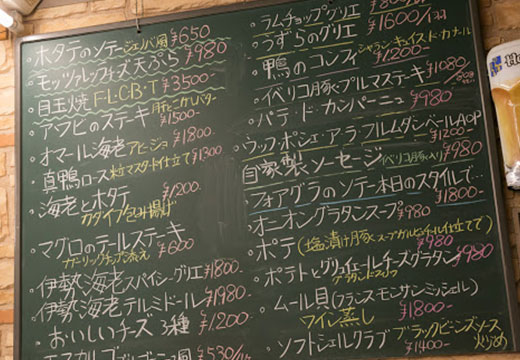 ・ホタテのソテー ジェノバ風 ¥650
・モッツァレラチーズ天ぷら ¥980
・目玉焼 F・L・C・B・T ¥3500-
・アワビのステーキ ¥1500-
・オマール海老 アヒージョ ¥1800-
・真鴨ロース 粒マスタード仕立て ¥1300
・海老とホタテ ¥1200-
カダイフ包み揚げ
・マグロのテールステーキ
ガーリックチップ添え ¥600
・伊勢海老 スパイシーグリエ ¥1800-
・伊勢海老 テルミドール ¥1980-
・おいしいチーズ 3種 ¥1200
¥530/1P
・ラムチョップグリエ ¥800/
・うずらのグリエ ¥1600/1羽
・鴨のコンフィ ¥1200-
・イベリコ豚 プルマステーキ ¥1080/
・パテ・ド・カンパーニュ ¥980
・ウッフポシェ・アラ・フルムダンベールAOP ¥1200-
・自家製ソーセージ (イベリコ豚入り) ¥980
・フォアグラのソテー 本日のスタイルで… ¥1800-
・オニオングラタンスープ ¥980
・ポテ (塩漬け豚 スープガルビュール仕立て) ¥980
・ポテトとグリュイエールチーズグラタン ¥980
・ムール貝 (フランス モンサンミッシェル)
ワイン蒸し ¥1800-
・ソフトシェルクラブ ブラックビーンズソース炒め ¥1400-